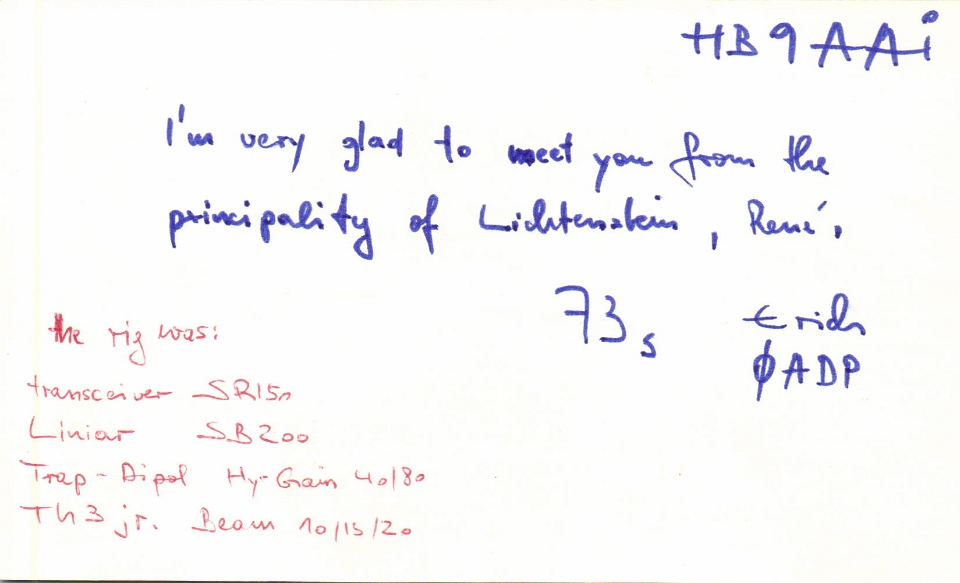 HB9AAi
I'm very glad to meet you from the
principality of Lichtenstein, René.
73s Erich
ØADP
the rig was:
transceiver SR150
Liniar SB200
Trap-Dipol Hy-Grain 40/80
Th3 jr. Beam 10/15/20